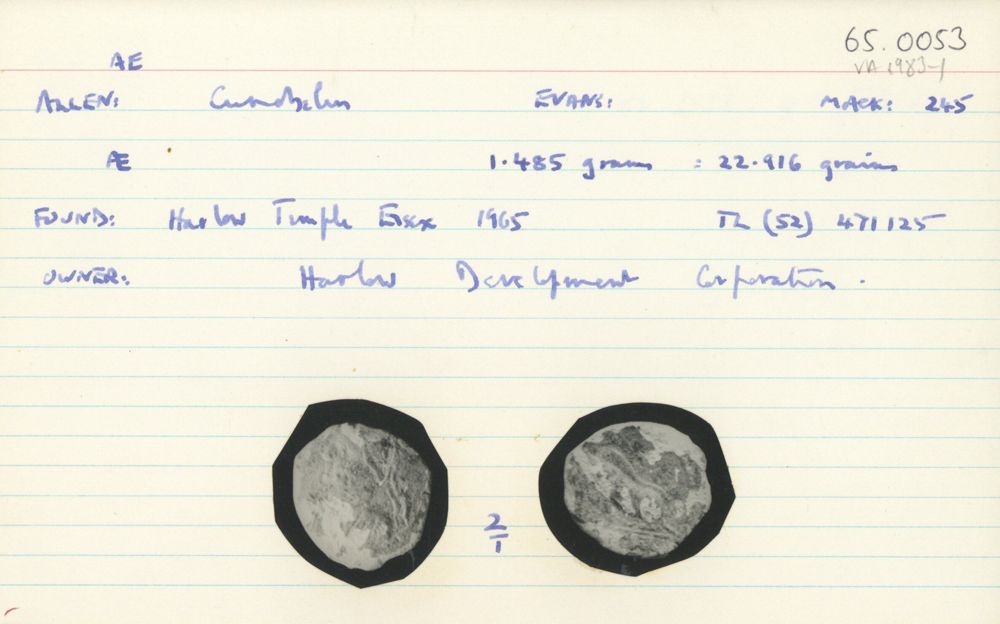 65.0053
AE VA 1983-1
ALLEN: Cunobelin EVANS: MACK: 245
Æ 1.485 grams = 22.916 grains
FOUND: Harlow Temple Essex 1965 TL (52) 471125
OWNER: Harlow Development Corporation.
2/1